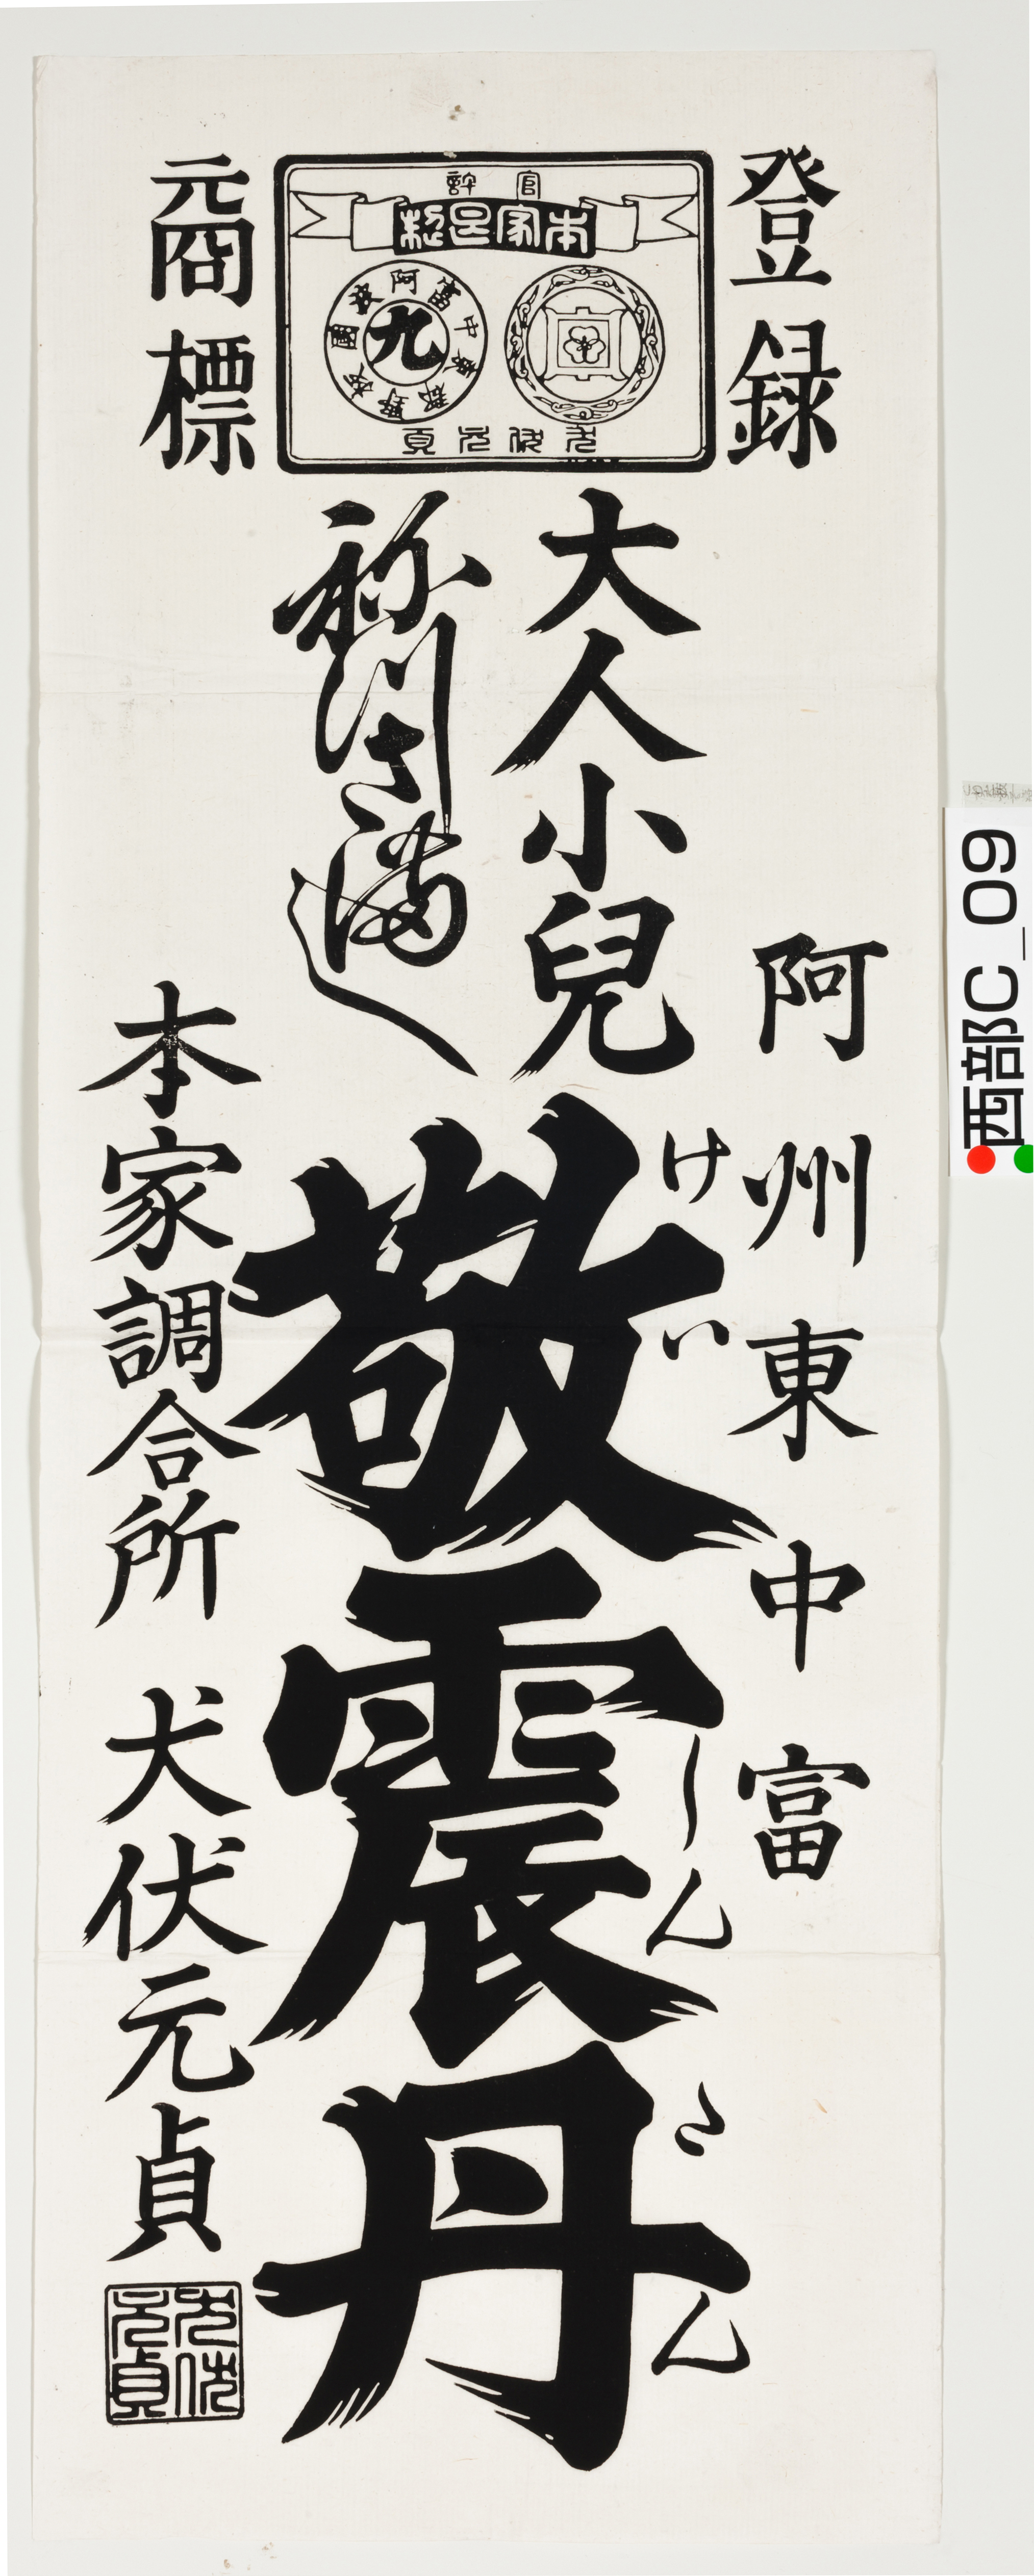 登録
元商標
官許
本家㠯製
阿波國
富中東
板野郡
丸
犬伏元貞
阿州東中富
大人小兒
敬震丹
けいしんたん
本家調合所 犬伏元貞
犬伏元貞
西部C_09